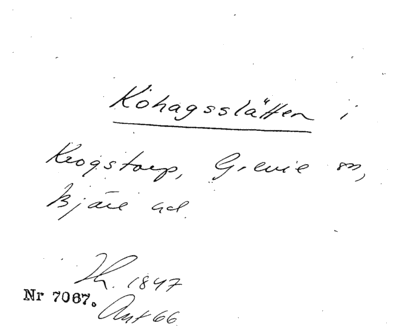 Kohagsslätten i
Krogstorp, Grevie sn,
Bjäre hd.
Th. 1847
Nr 7067.
Ant 66